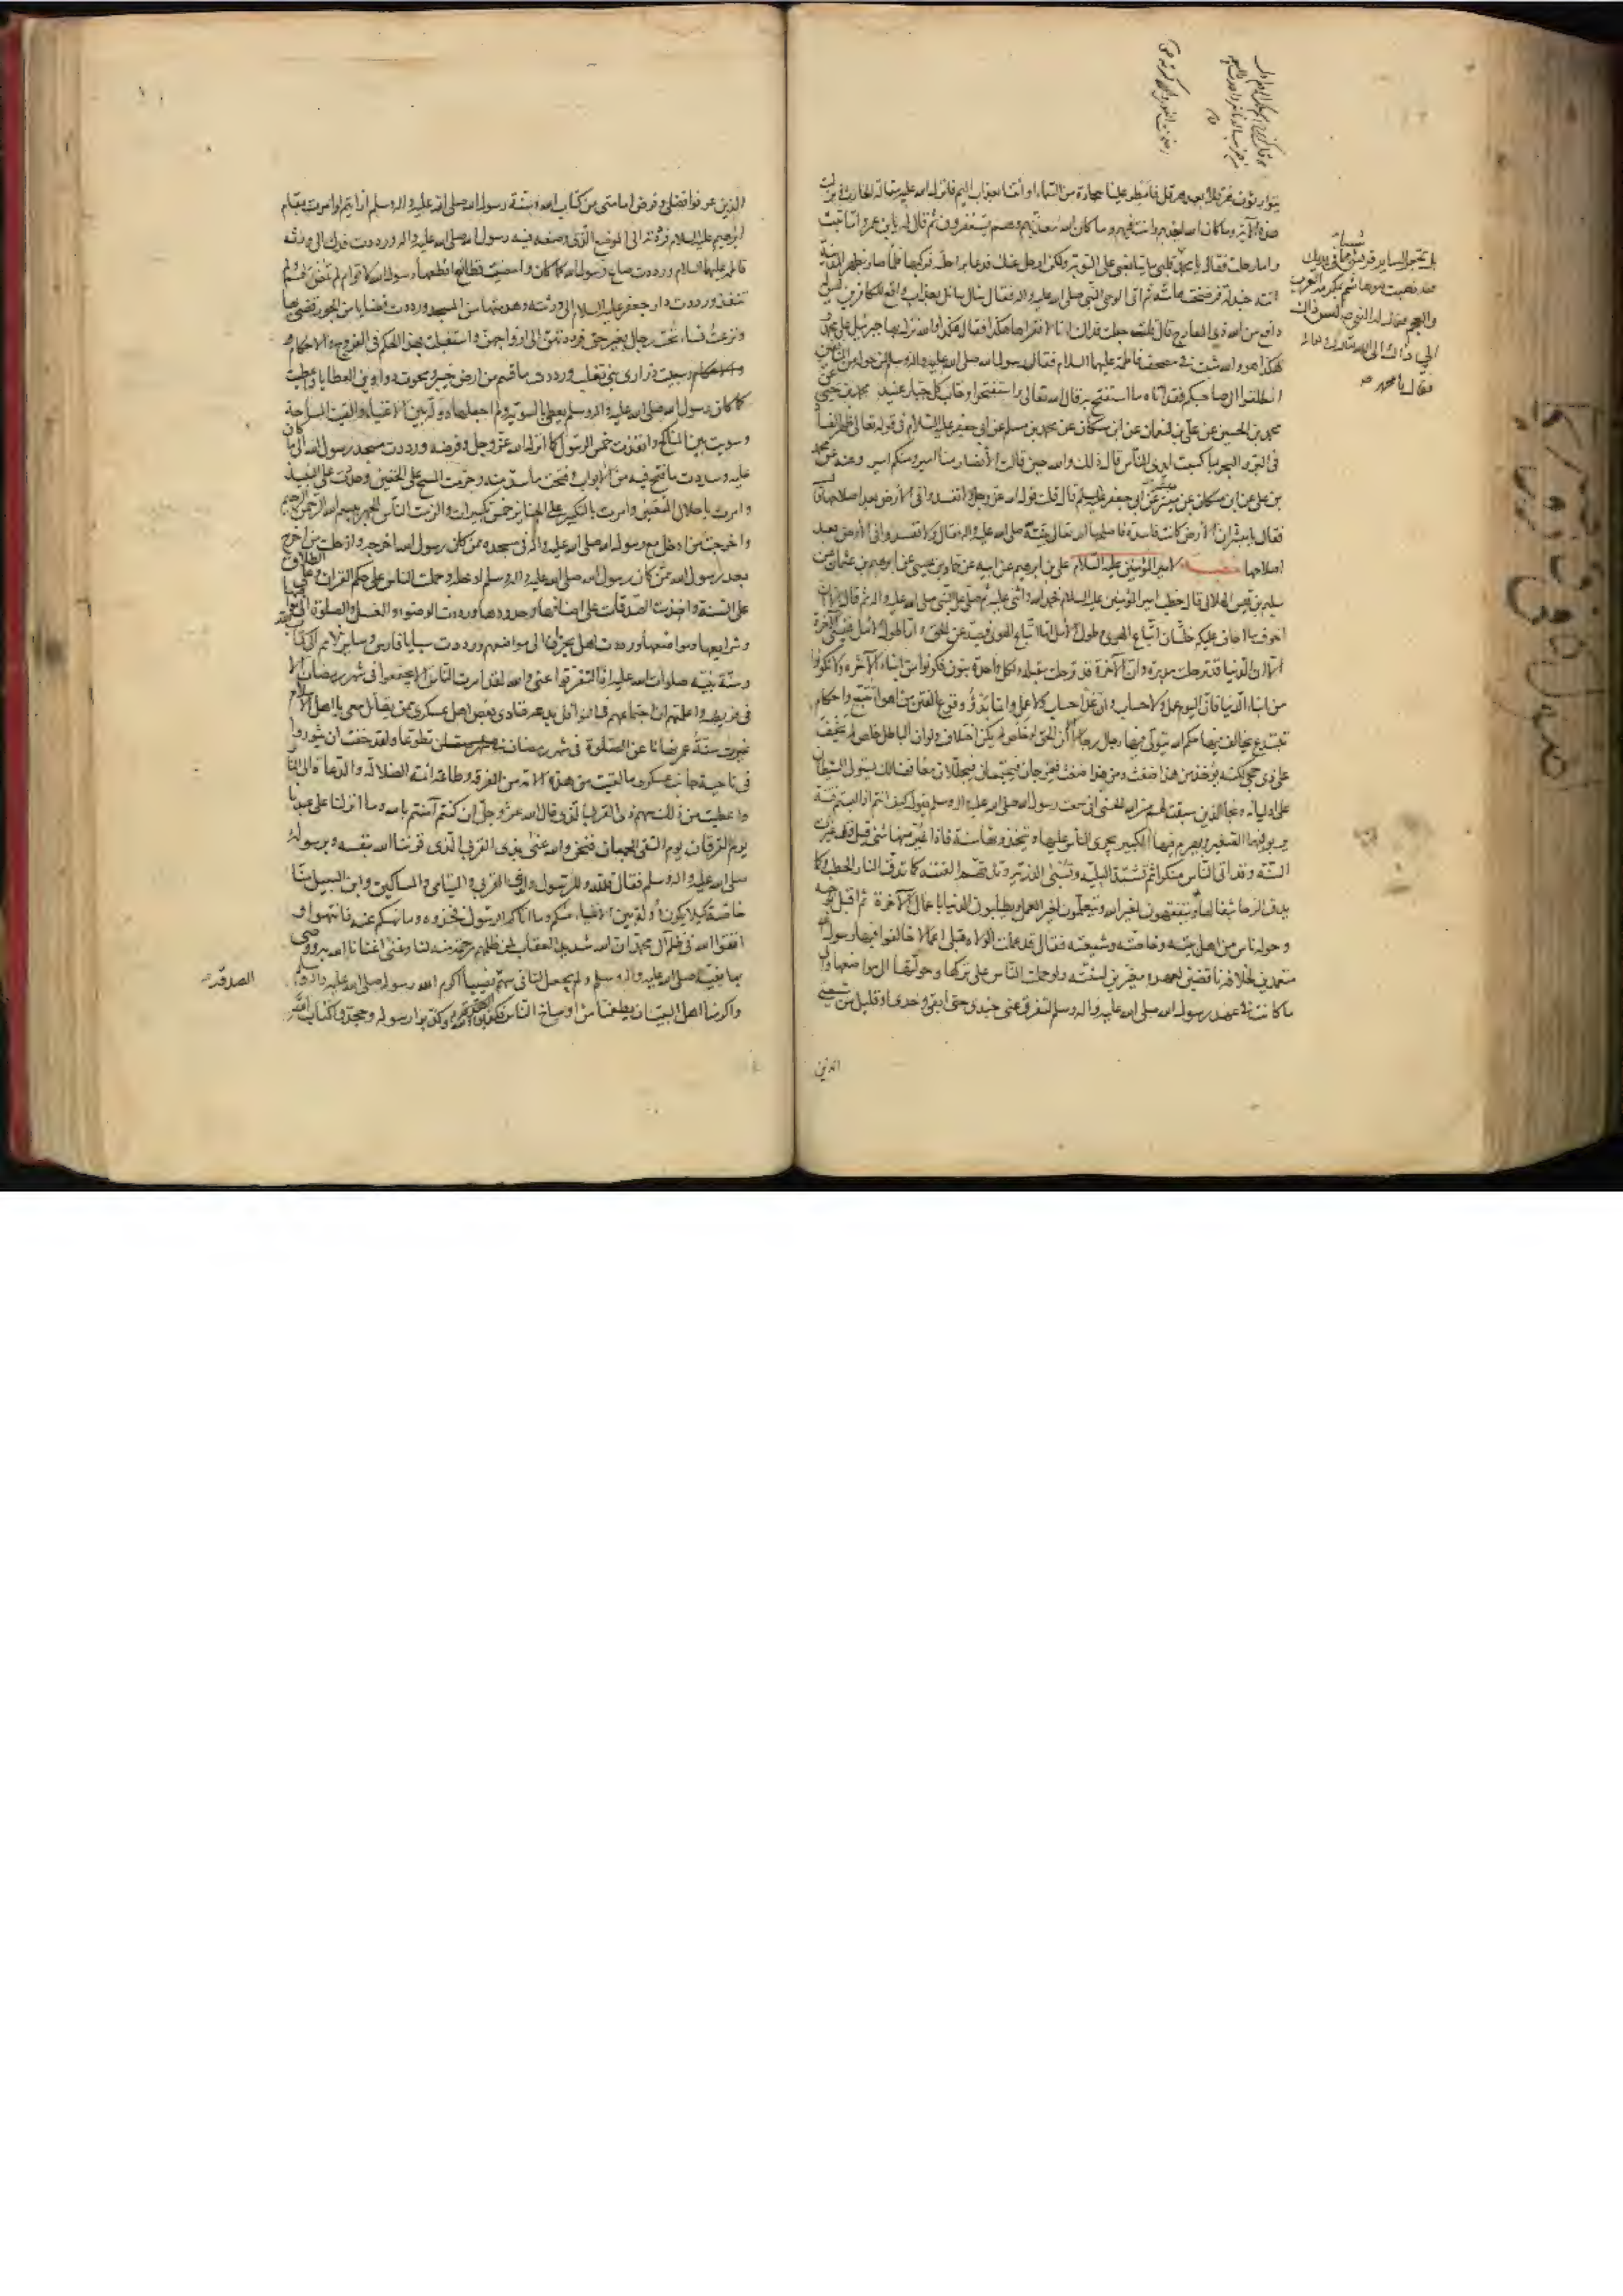 هرقلا بعد هرقل فامطر علينا حجارة من السماء او ائتنا بعذاب اليم فانزل الله عليه مقالة الحارث ونزلت
هذه الآية وما كان الله ليعذبهم وانت فيهم وما كان الله معذبهم وهم يستغفرون ثم قال له يا بن عمرو اما تبت
واما رحلت فقال يا محمد قلبي ما يتابعني على التوبة ولكن ارحل عنك فدعا براحلته فركبها فلما صار بظهر المدينة
اتته جندلة فرضخت هامته ثم اتى الوحي النبي صلى الله عليه واله فقال سال سائل بعذاب واقع للكافرين ليس له
دافع من الله ذي المعارج قال قلت جعلت فداك انا لا نقراها هكذا فقال هكذا والله نزل بها جبرئيل على محمد
هكذا هو والله مثبت في مصحف فاطمة عليها السلام فقال رسول الله صلى الله عليه واله وسلم لمن حوله من المنافقين
انطلقوا الى صاحبكم فقد اتاه ما استفتح به قال الله تعالى واستفتحوا وخاب كل جبار عنيد محمد بن يحيى عن
محمد بن الحسين عن علي بن النعمان عن ابن مسكان عن محمد بن مسلم عن ابي جعفر عليه السلام في قوله تعالى ظهر الفساد
في البر والبحر بما كسبت ايدي الناس قال ذلك والله حين قالت الأنصار منا امير ومنكم امير وعنه عن محمد
بن علي عن ابن مسكان عن ميسر عن ابي جعفر عليه السلم قال قلت قول الله عز وجل ولا تفسدوا في الأرض بعد اصلاحها قال
فقال يا ميسر ان الأرض كانت فاسدة فاصلحها الله تعالى بنبيه صلى الله عليه واله فقال ولا تفسدوا في الأرض بعد
اصلاحها خطبة لامير المؤمنين عليه السلام علي بن ابرهيم عن ابيه عن حماد بن عيسى عن ابرهيم بن عثمان عن
سليم بن قيس الهلالي قال خطب امير المؤمنين عليه السلام فحمد الله واثنى عليه ثم صلى على النبي صلى الله عليه واله ثم قال الا ان
اخوف ما اخاف عليكم خلتان اتباع الهوى وطول الأمل اما اتباع الهوى فيصد عن الحق واما طول الأمل فينسي الآخرة
الا ان الدنيا قد ترحلت مدبرة وان الآخرة قد ترحلت مقبلة ولكل واحدة بنون فكونوا من ابناء الآخرة ولا تكونوا
من ابناء الدنيا فان اليوم عمل ولا حساب وان غدا حساب ولا عمل وانما بدؤ وقوع الفتن من اهواء تتبع واحكام
تبتدع يخالف فيها حكم الله يتولى فيها رجال رجالا الا ان الحق لو خلص لم يكن اختلاف ولو ان الباطل خلص لم يخف
على ذي حجى لكنه يؤخذ من هذا ضغث ومن هذا ضغث فيمزجان فيجتمعان فيجللان معا فهنالك يستولى الشيطان
على اوليائه ونجا الذين سبقت لهم من الله الحسنى اني سمعت رسول الله صلى الله عليه واله وسلم يقول كيف انتم اذا البستم فتنة
يربو فيها الصغير ويهرم فيها الكبير يجرى الناس عليها ويتخذونها سنة فاذا غير منها شئ قيل قد غيرت
السنة وقد اتى الناس منكرا ثم تشتد البلية وتسبى الذرية وتدقهم الفتنة كما تدق النار الحطب وكما
تدق الرحا بثفالها ويتفقهون لغير الله ويتعلمون لغير العمل ويطلبون الدنيا باعمال الآخرة ثم اقبل بوجهه
وحوله ناس من اهل بيته وخاصته وشيعته فقال قد عملت الولاة قبلى اعمالا خالفوا فيها رسول الله
متعمدين لخلافه ناقضين لعهده مغيرين لسنته ولو حملت الناس على تركها وحولتها الى مواضعها والى
ما كانت في عهد رسول الله صلى الله عليه واله وسلم لتفرق عني جندي حتى ابقى وحدي او قليل من شيعتي
الذين
بل تجعل لساير قريش شيئا مما في يديك
فقد ذهبت بنو هاشم بمكرمة العرب
والعجم فقال له النبي ص ليس ذلك
الي ذلك الى الله تبارك وتعالى
فقال يا محمد
الذين عرفوا فضلي وفرض امامتي من كتاب الله وسنة رسول الله صلى الله عليه واله وسلم ارايتم لو امرت بمقام
ابرهيم عليه السلام فرددته الى الموضع الذي وضعه فيه رسول الله صلى الله عليه واله ورددت فدك الى ورثة
فاطمة عليها السلام ورددت صاع رسول الله كما كان وامضيت قطائع اقطعها رسول الله لاقوام لم تمض لهم ولم
تنفذ ورددت دار جعفر عليه السلام الى ورثته وهدمتها من المسجد ورددت قضايا من الجور قضي بها
ونزعت نساء تحت رجال بغير حق فرددتهن الى ازواجهن واستقبلت بهن الحكم في الفروج والاحكام
وسبيت ذراري بني تغلب ورددت ما قسم من ارض خيبر ومحوت دواوين العطايا واعطيت
كما كان رسول الله صلى الله عليه واله وسلم يعطي بالسوية ولم اجعلها دولة بين الأغنياء والقيت المساحة
وسويت بين المناكح وانفذت خمس الرسول كما انزل الله عز وجل وفرضه ورددت مسجد رسول الله الى ما كان
عليه وسددت ما فتح فيه من الأبواب وفتحت ما سد منه وحرمت المسح على الخفين وحددت على النبيذ
وامرت باحلال المتعتين وامرت بالتكبير على الجنايز خمس تكبيرات والزمت الناس الجهر ببسم الله الرحمن الرحيم
واخرجت من ادخل مع رسول الله صلى الله عليه واله في مسجده ممن كان رسول الله اخرجه وادخلت من اخرج
بعد رسول الله ممن كان رسول الله صلى الله عليه واله وسلم ادخله وحملت الناس على حكم القران وعلى الطلاق
على السنة واخذت الصدقات على اصنافها وحدودها ورددت الوضوء والغسل والصلوة الى مواقيتها
وشرايعها ومواضعها ورددت اهل نجران الى مواضعهم ورددت سبايا فارس وساير الامم الى كتاب الله
وسنة نبيه صلوات الله عليه اذا لتفرقوا عني والله لقد امرت الناس الا يجتمعوا في شهر رمضان الا
في فريضة واعلمتهم ان اجتماعهم في النوافل بدعة فتنادى بعض اهل عسكري ممن يقاتل معي يا اهل الاسلام
غيرت سنة عمر نهانا عن الصلوة في شهر رمضان تطوعا ولقد خفت ان يثوروا
في ناحية جانب عسكري ما لقيت من هذه الامة من الفرقة وطاعة ائمة الضلالة والدعاة الى النار
واعطيت من ذلك سهم ذي القربى الذي قال الله عز وجل ان كنتم آمنتم بالله وما انزلنا على عبدنا
يوم الفرقان يوم التقى الجمعان فنحن والله عنى بذي القربى الذي قرننا الله بنفسه وبرسوله
صلى الله عليه واله وسلم فقال فلله وللرسول ولذي القربى واليتامى والمساكين وابن السبيل منا
خاصة كيلا يكون دولة بين الأغنياء منكم وما اتاكم الرسول فخذوه وما نهيكم عنه فانتهوا و
اتقوا الله في ظلم آل محمد ان الله شديد العقاب لمن ظلمهم رحمة منه لنا وغنى اغنانا الله به ووصى
بها نبيه صلى الله عليه واله وسلم ولم يجعل لنا في سهم نصيبا اكرم الله رسوله صلى الله عليه واله
واكرمنا اهل البيت ان يطعمنا من اوساخ الناس فكذبوا الله وكذبوا رسوله وجحدوا كتاب الله
الصدقة